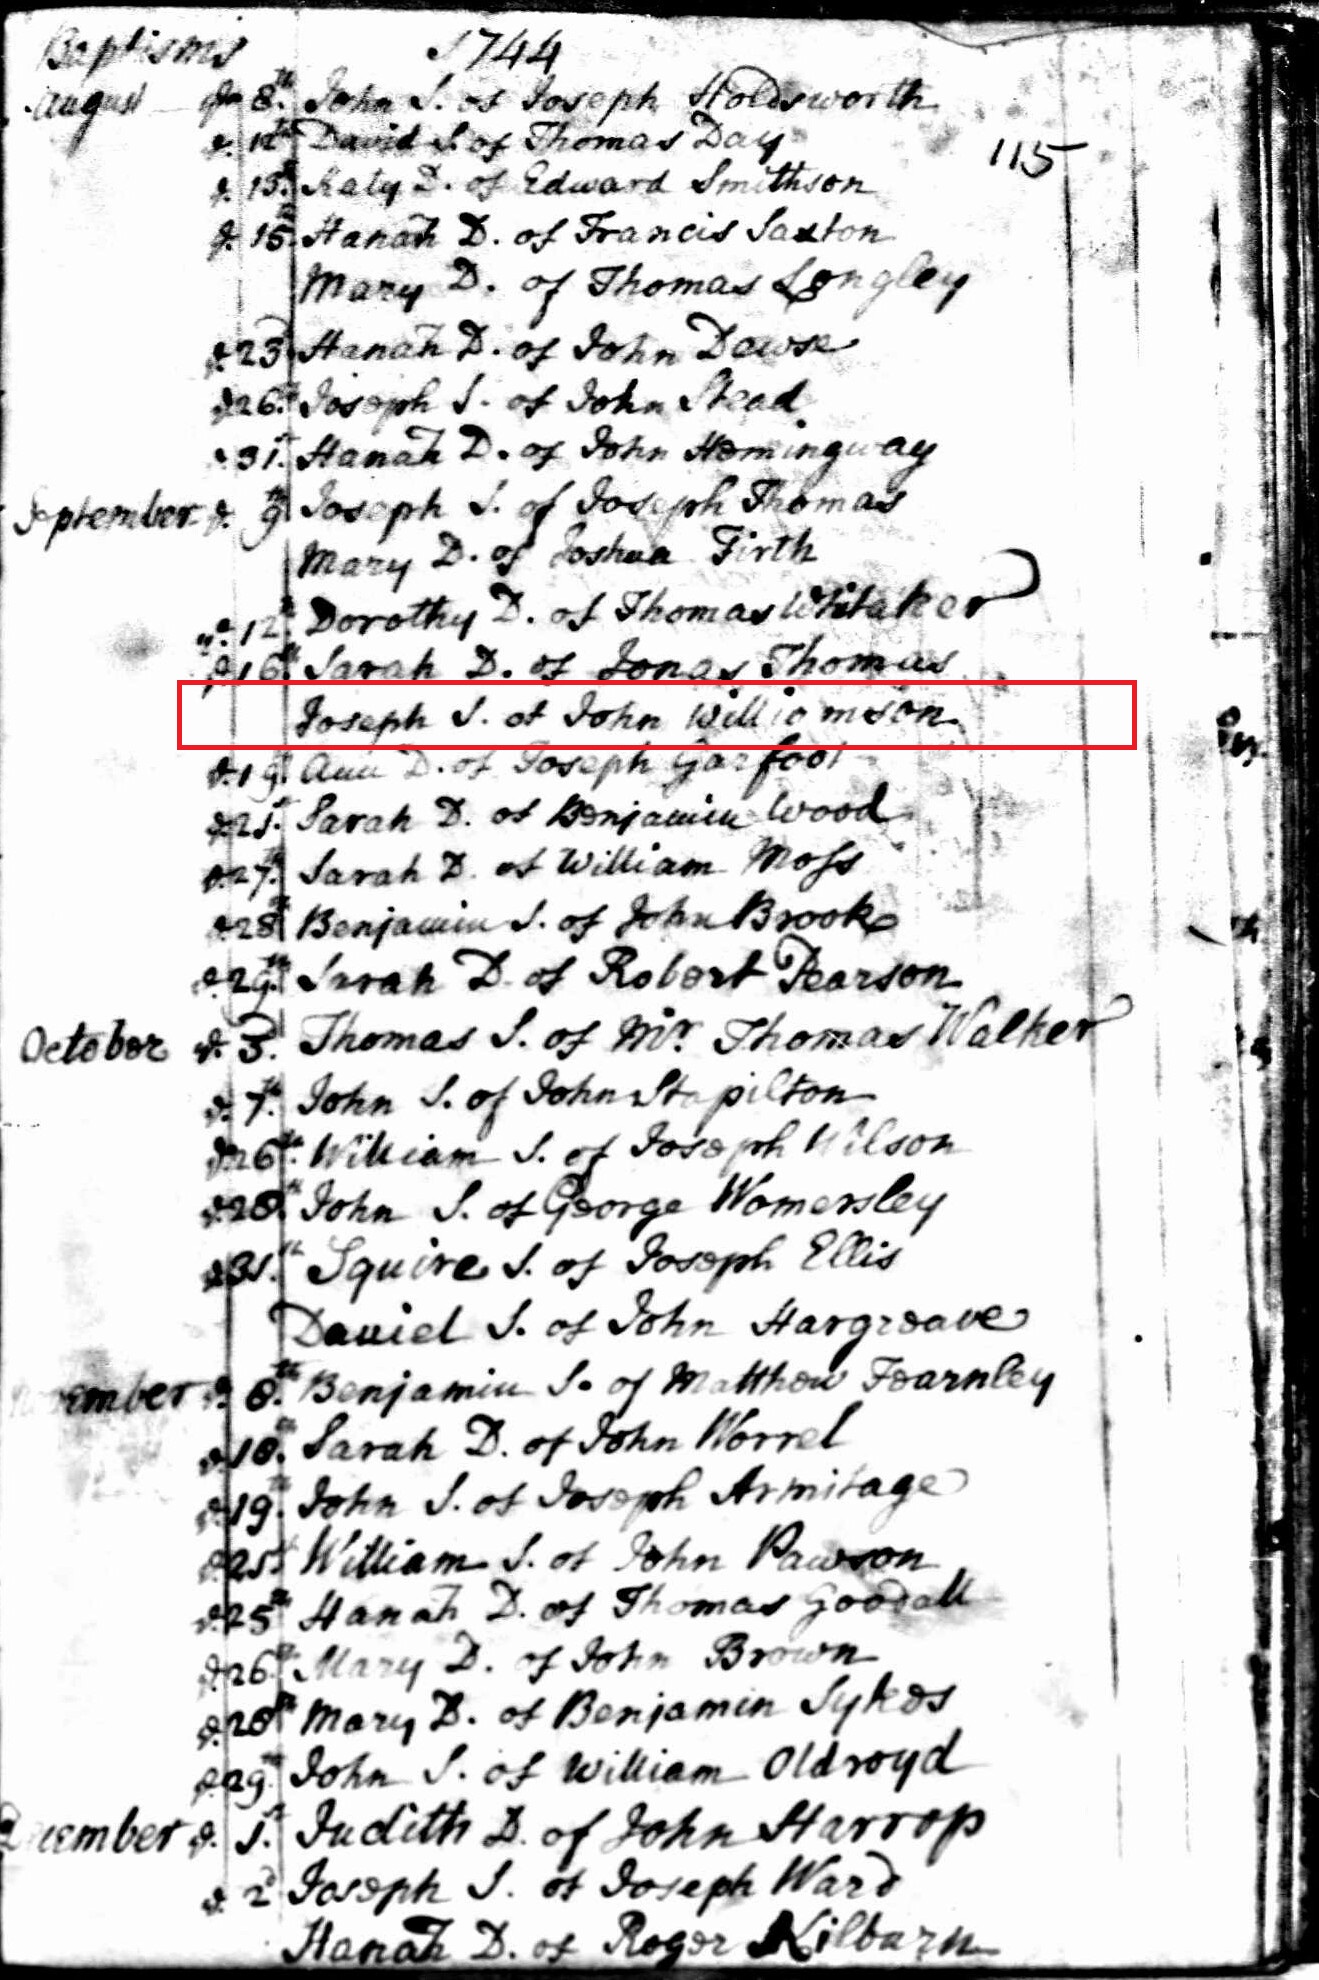 Baptisms 1744
August 8.th John S. of Joseph Holdsworth
115
12th David S. of Thomas Day
13. Katy D. of Edward Smithson
15. Hanah D. of Francis Saxton
Mary D. of Thomas Longley
23 Hanah D. of John Dawse
26. Joseph S. of John Stead
31. Hanah D. of John Hemingway
September 9th Joseph S. of Joseph Thomas
Mary D. of Joshua Firth
12th Dorothy D. of Thomas Whitaker
16th Sarah D. of Jonas Thomas
Joseph S. of John Williamson
19. Ann D. of Joseph Garfoot
21. Sarah D. of Benjamin Wood
27.th Sarah D. of William Moss
28 Benjamin S. of John Brooke
29.th Sarah D. of Robert Pearson
October 3. Thomas S. of Mr. Thomas Walker
7.th John S. of John Stapilton
26th William S. of Joseph Wilson
28.th John S. of George Womersley
31. Squire S. of Joseph Ellis
Daniel S. of John Hargreave
8.th Benjamin S. of Matthew Fearnley
18. Sarah D. of John Worrel
19. John S. of Joseph Armitage
William S. of John Pawson
25th Hanah D. of Thomas Goodall
26th Mary D. of John Brown
28th Mary D. of Benjamin Sykes
29th John S. of William Oldroyd
December 1.st Judith D. of John Harrop
2d Joseph S. of Joseph Ward
Hanah D. of Roger Kilburn